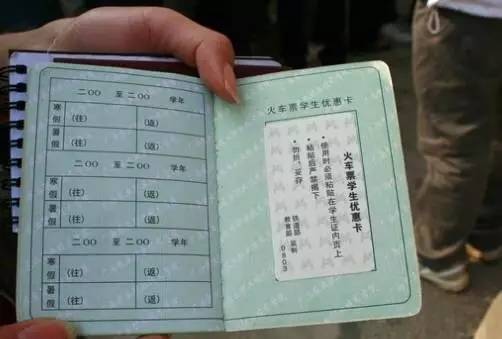 二〇〇 至 二〇〇 学年
寒假 (往) (返)
暑假 (往) (返)
二〇〇 至 二〇〇 学年
寒假 (往) (返)
暑假 (往) (返)
二〇〇 至 二〇〇 学年
寒假 (往) (返)
暑假 (往) (返)
火车票学生优惠卡
火车票学生优惠卡
•使用时必须粘贴在学生证内页上
•粘贴后严禁揭下
•勿折、妥存
铁道部
教育部 监制
0803